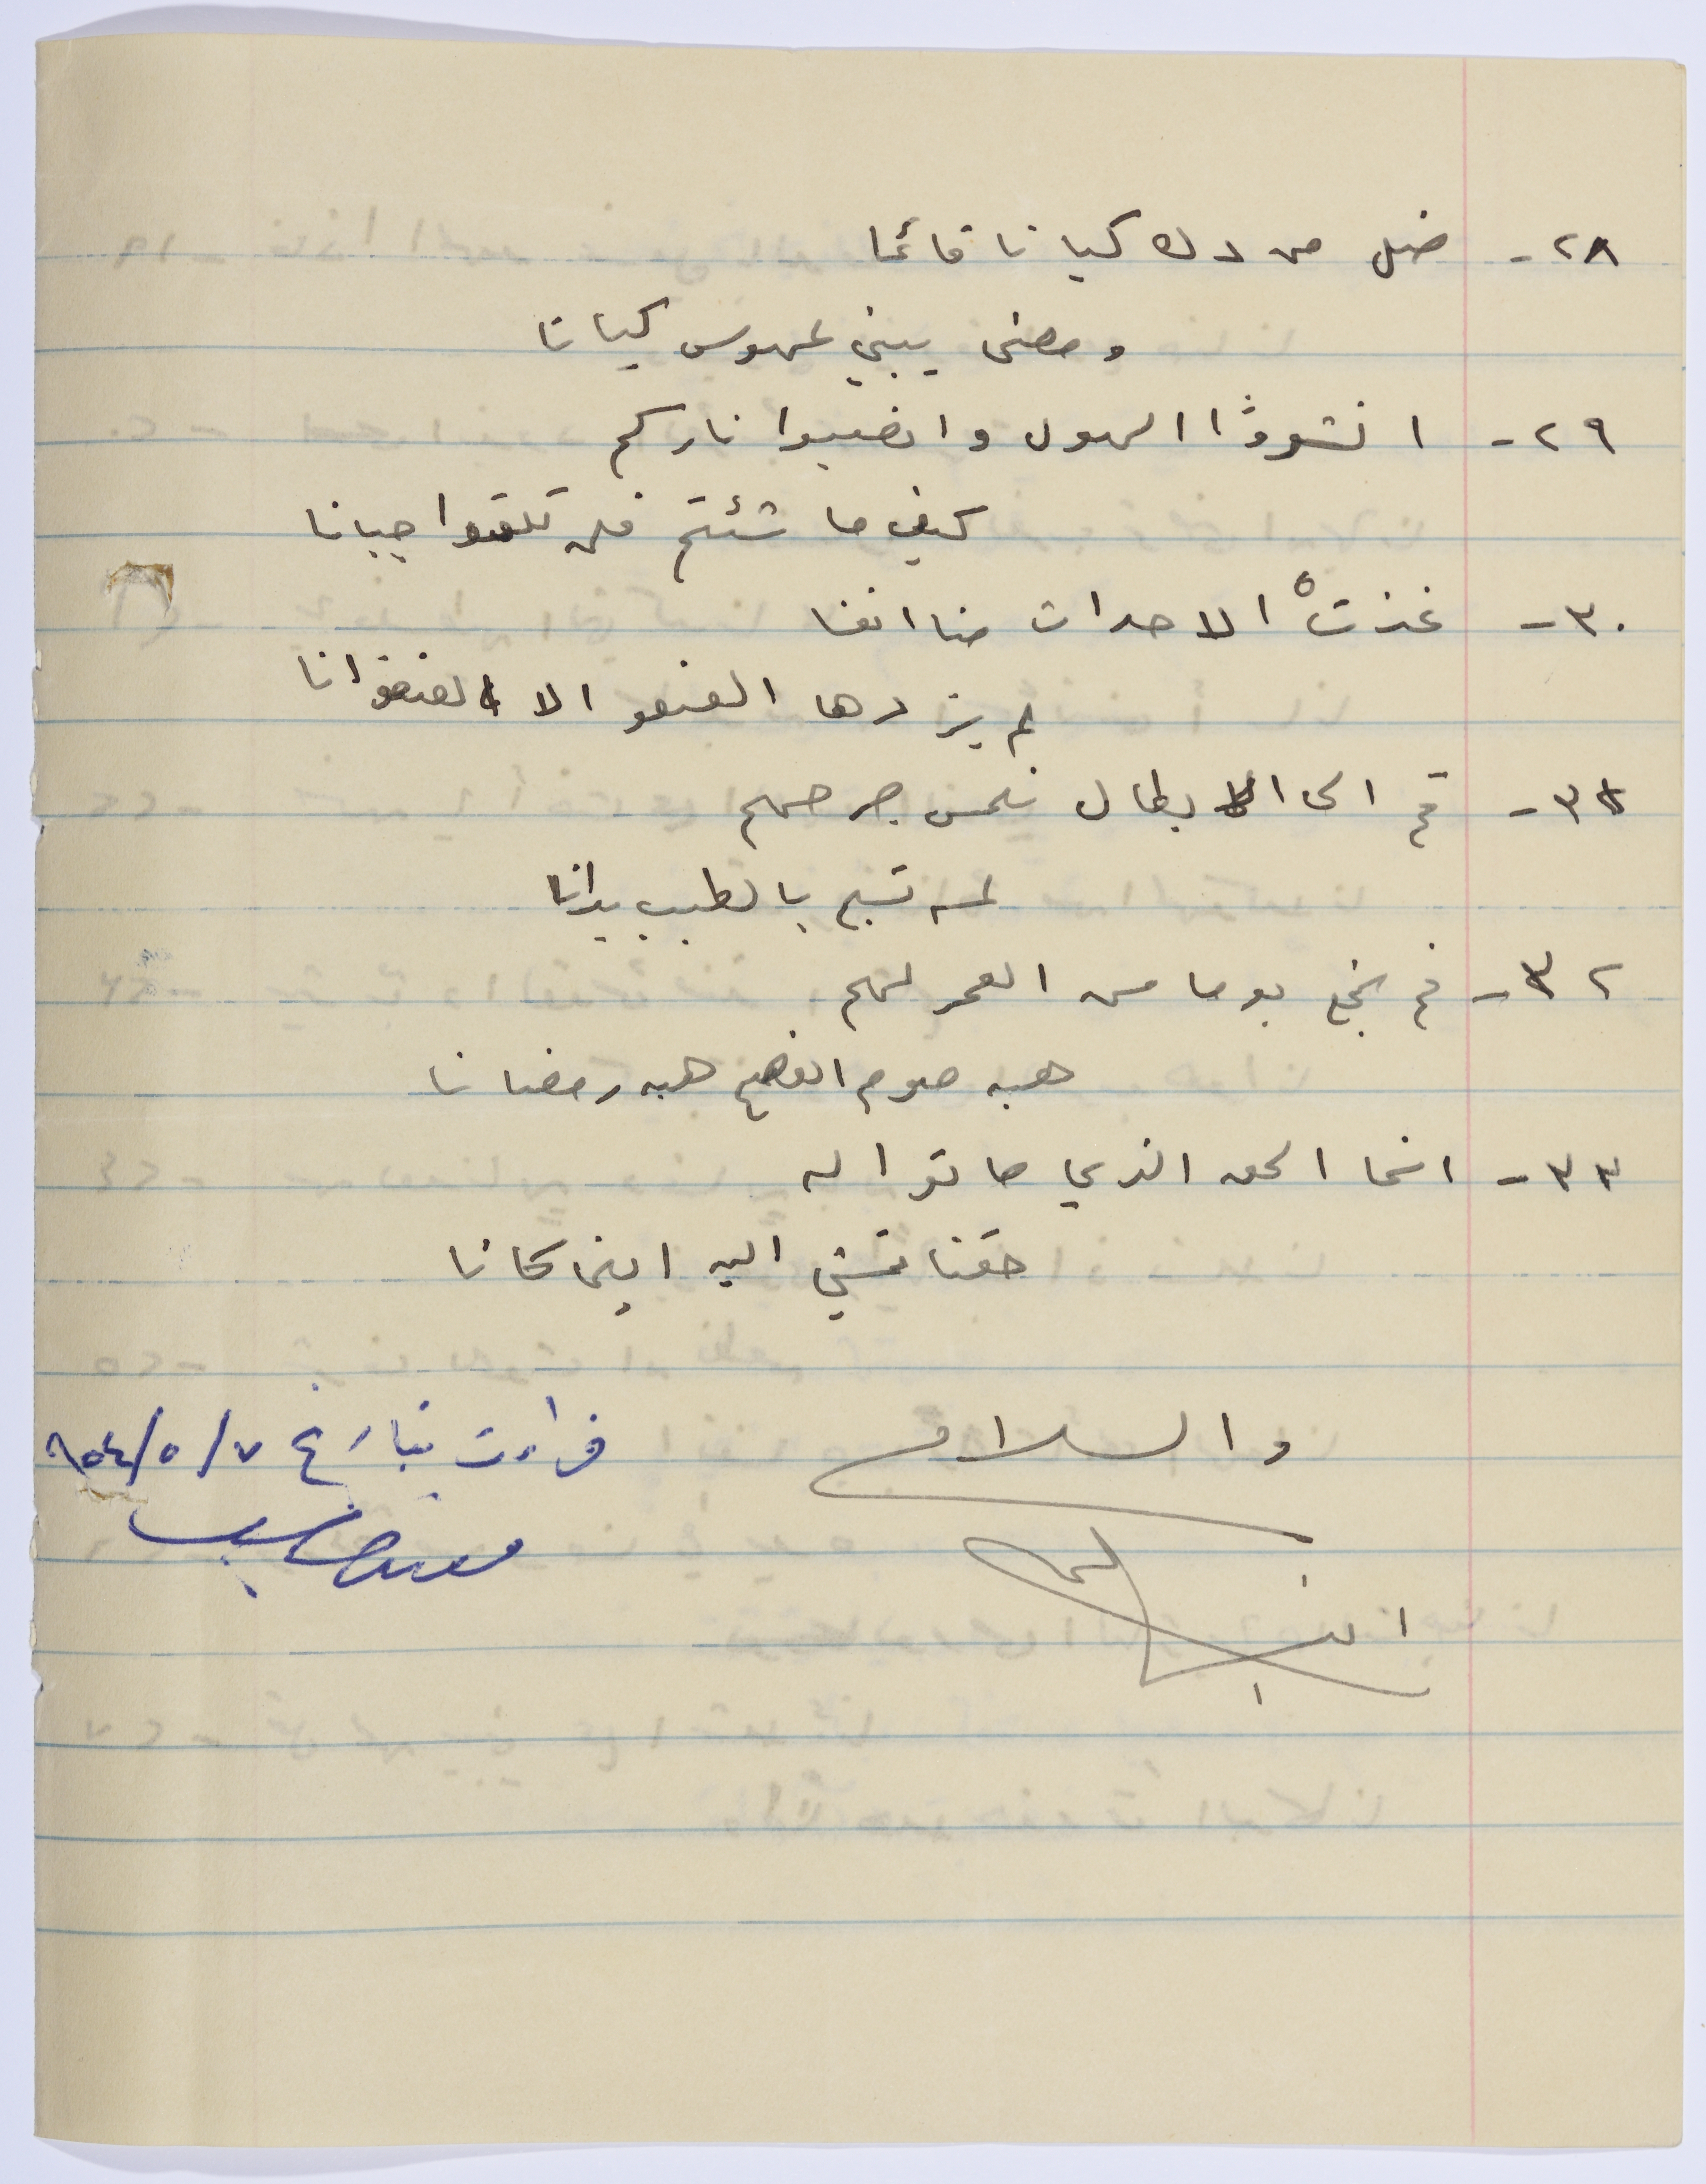 ٢٨- ضل من دك كيانا قائما
ومضى يبني لمهووس كيانا
٢٩- انشروا الهول واصبوا ناركم
كيف ما شئتم فلن تلقوا جبانا
٣٠- غذت الاحداث منا انفسا
لم يزدها العنف الا عنفوانا
٣١- قم الى الابطال نلمس جرحهم
لمسة تسبح بالطيب يدانا
٣٢- قم نجع يوما من العمر لهم
هبه صوم الفصح هبه رمضانا
٣٣- انما الحق الذي ماتوا له
حقنا نمشي اليه اينما كانا
والسلام
قراءت بتاريخ ٧/٥/٩٥٤